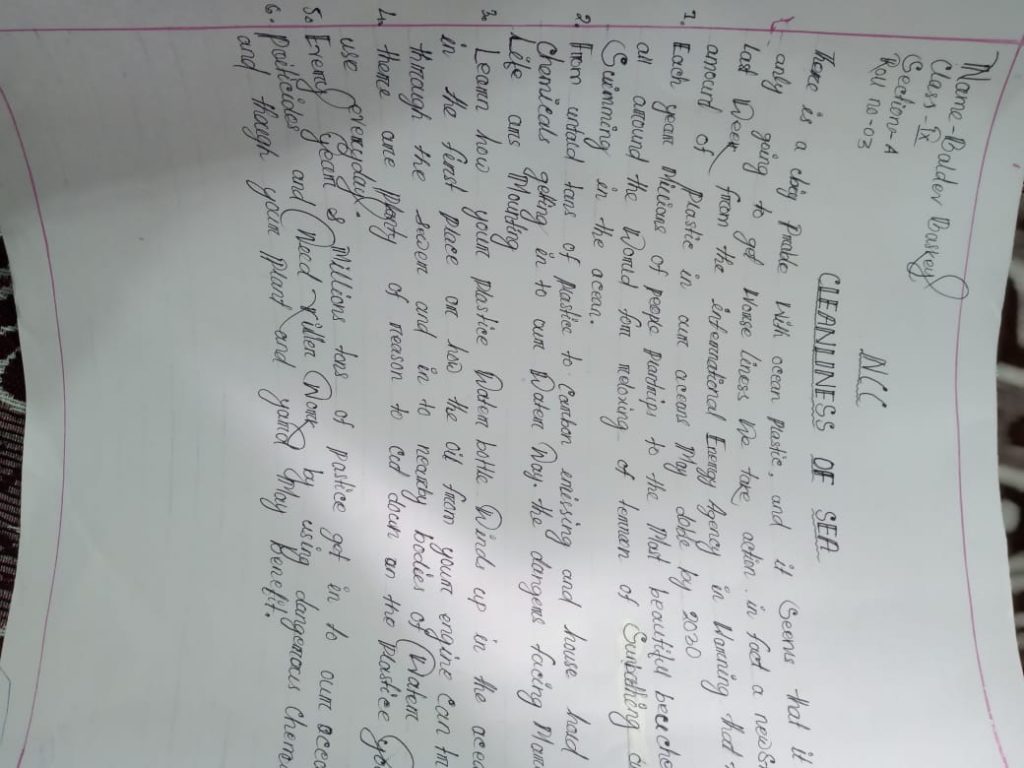 Name-Balder Baskey
Class-IX
Section-A
Roll no-03
NCC
CLEANLINESS OF SEA
There is a cbig proble with ocean plastic, and it seems that it
only going to get worse liness we take action. in foct a news
last Week from the international Energy Agency in Warning that
amound of plastic in our oceans May doble by 2020
1. Each year Millions of people to the Most beautiful beache
all around the World for relaxing of of Sunbathing
Swimming in the ocean.
2. From untold tons of plastic to carbon and house had
Chemicals getting in to our Water Way. the dangers facing
Life are Mounting
3. Learn how your plastice Water bottle Winds up in the ocea
in the ferst place or how the oil from your engine can
through the sewer and in to nearby bodies of Water
4. there are plenty of reason to cd down on the plastice you
use everyday.
5. Every year 8 Millions tons of palstice get in to our ocea
6. and Weed killer Work by using dangerous chem
and though your plant and yard May Benefit.